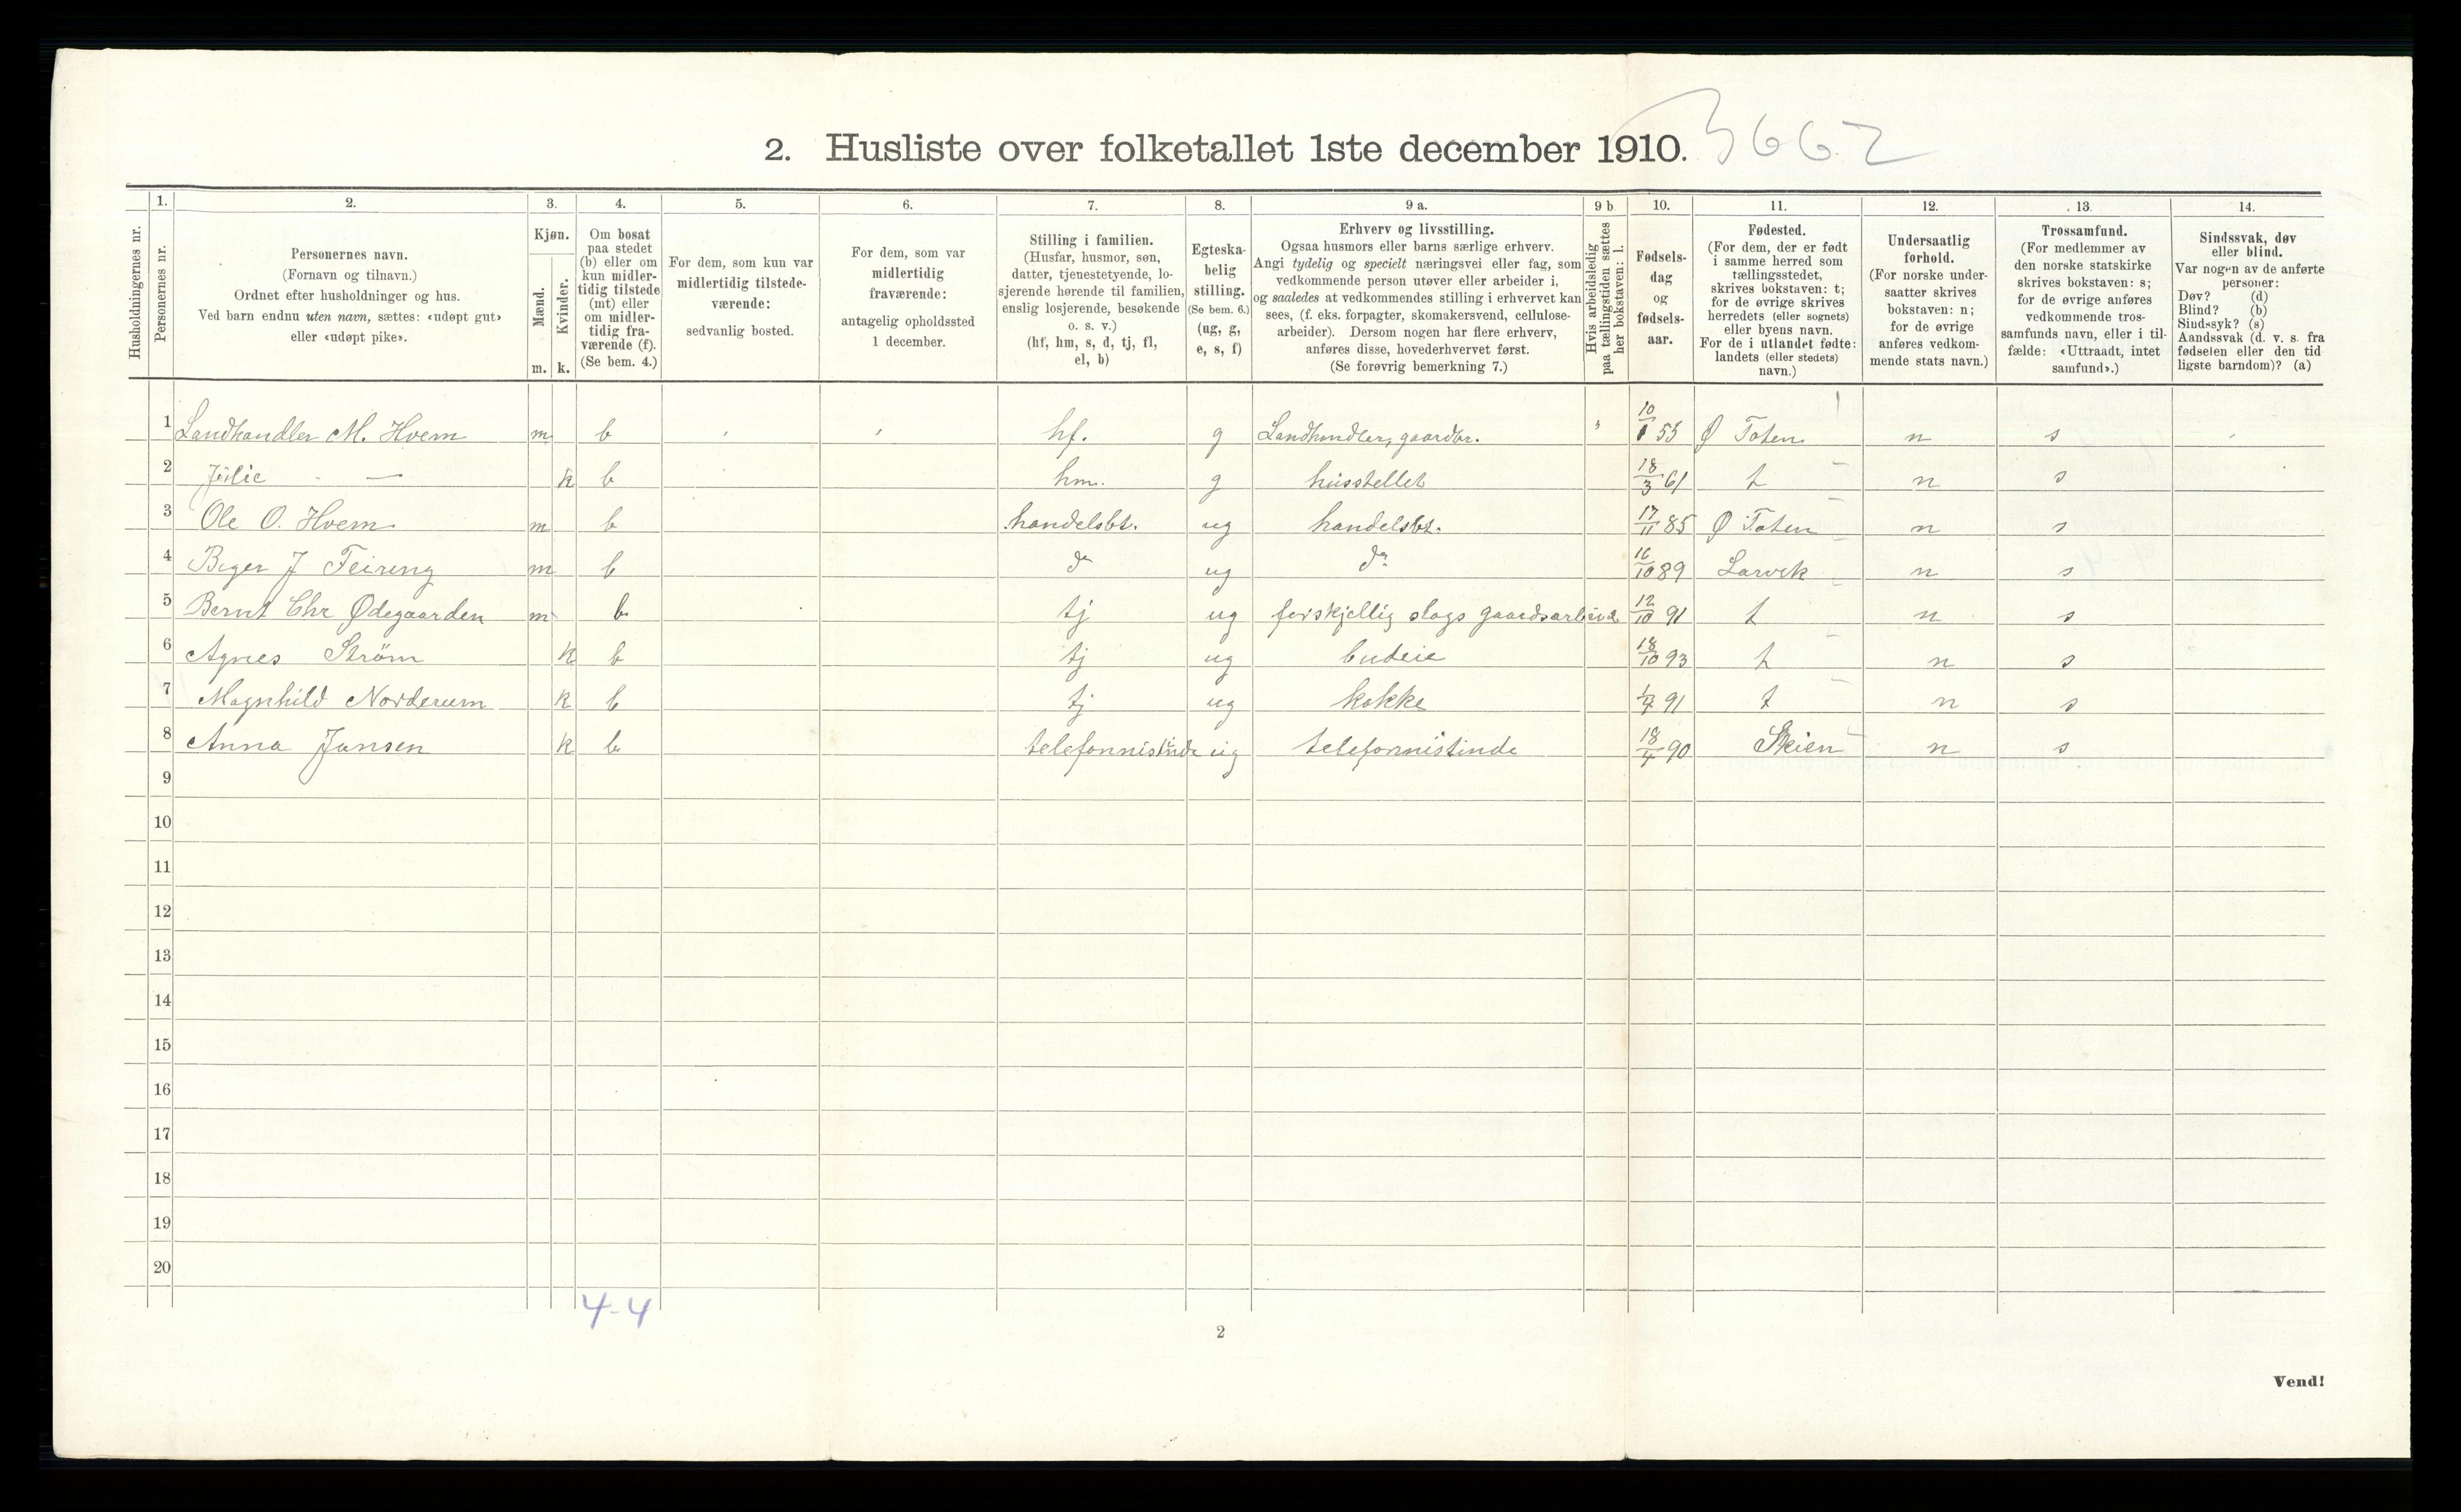 2. Husliste over folketallet 1ste december 1910. 3662
1. 2. 3. 4. 5. 6. 7. 8. 9 a. 9 b 10. 11. 12. 13. 14.
Husholdningernes nr.
Personernes nr.
Personernes navn.
(Fornavn og tilnavn.)
Ordnet efter husholdninger og hus.
Ved barn endnu uten navn, sættes: «udøpt gut»
eller «udøpt pike».
Kjøn.
Mænd.
Kvinder.
m. k.
Om bosat
paa stedet
(b) eller om
kun midler-
tidig tilstede
(mt) eller
om midler-
tidig fra-
værende (f).
(Se bem. 4.)
For dem, som kun var
midlertidig tilstede-
værende:
sedvanlig bosted.
For dem, som var
midlertidig
fraværende:
antagelig opholdssted
1 december.
Stilling i familien.
(Husfar, husmor, søn,
datter, tjenestetyende, lo-
sjerende hørende til familien,
enslig losjerende, besøkende
o. s. v.)
(hf, hm, s, d, tj, fl,
el, b)
Egteska-
belig
stilling.
(Se bem. 6.)
(ug, g,
e, s, f)
Erhverv og livsstilling.
Ogsaa husmors eller barns særlige erhverv.
Angi tydelig og specielt næringsvei eller fag, som
vedkommende person utøver eller arbeider i,
og saaledes at vedkommendes stilling i erhvervet kan
sees, (f. eks. forpagter, skomakersvend, cellulose-
arbeider). Dersom nogen har flere erhverv,
anføres disse, hovederhvervet først.
(Se forøvrig bemerkning 7.)
Hvis arbeidsledig
paa tællingstiden sættes
her bokstaven: l.
Fødsels-
dag
og
fødsels-
aar.
Fødested.
(For dem, der er født
i samme herred som
tællingsstedet,
skrives bokstaven: t;
for de øvrige skrives
herredets (eller sognets)
eller byens navn.
For de i utlandet fødte:
landets (eller stedets)
navn.)
Undersaatlig
forhold.
(For norske under-
saatter skrives
bokstaven: n;
for de øvrige
anføres vedkom-
mende stats navn.)
Trossamfund.
(For medlemmer av
den norske statskirke
skrives bokstaven: s;
for de øvrige anføres
vedkommende tros-
samfunds navn, eller i til-
fælde: «Uttraadt, intet
samfund».)
Sindssvak, døv
eller blind.
Var nogen av de anførte
personer:
Døv? (d)
Blind? (b)
Sindssyk? (s)
Aandssvak (d. v. s. fra
fødselen eller den tid
ligste barndom)? (a)
1 Landhandler M. Hvem m b hf. g Landhandler, gaardbr. 10/1 55 Ø Toten n s
2 Julie - — k b hm. g husstellet 18/3 61 t n s
3 Ole O. Hvem m b handelsbt. ug handelsbt. 17/11 85 Ø Toten n s
4 Birger J Feiring m b do ug do 16/10 89 Larvik n s
5 Bernt Chr Ødegaarden m b tj ug forskjellig slags gaardsarbeide 12/10 91 t n s
6 Agnes Strøm k b tj ug budeie 18/10 93 t n s
7 Magnhild Norderum k b tj ug kokke 91 t n s
8 Anna Jansen k b telefonnistinde ug telefonnistinde 18/4 90 Skien n s
9
10
11
12
13
14
15
16
17
18
19
20
4-4
2
Vend!